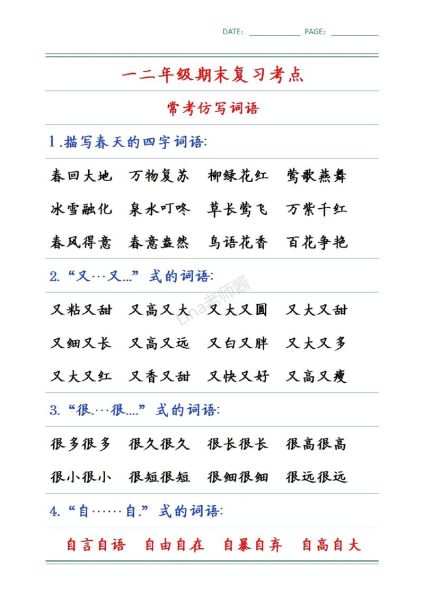 DATE: PAGE:
一二年级期末复习考点
常考仿写词语
1.描写春天的四字词语:
春回大地 万物复苏 柳绿花红 莺歌燕舞
冰雪融化 泉水叮咚 草长莺飞 万紫千红
春风得意 春意盎然 鸟语花香 百花争艳
2.“又…又...”式的词语:
又粘又甜 又高又大 又大又圆 又大又甜
又细又长 又高又远 又白又胖 又大又多
又大又红 又香又甜 又快又好 又高又瘦
3.“很.…很....”式的词语:
很多很多 很久很久 很长很长 很高很高
很小很小 很短很短 很细很细 很远很远
4.“自……自.”式的词语:
自言自语 自由自在 自暴自弃 自高自大
Lina老师酱